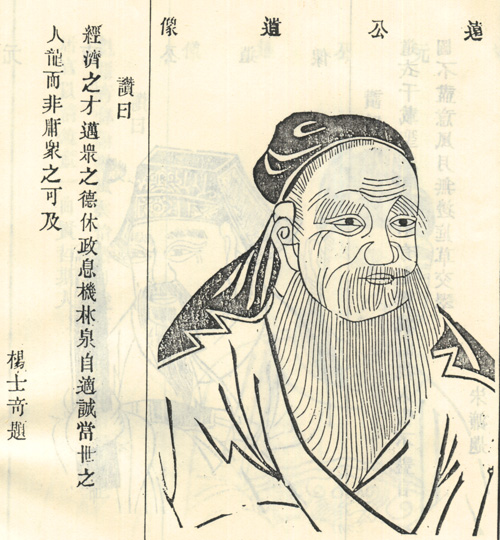 遠公道像
讚曰
經濟之才邁衆之德休政息機林泉自適誠當世之
人龍而非庸衆之可及
楊士奇題